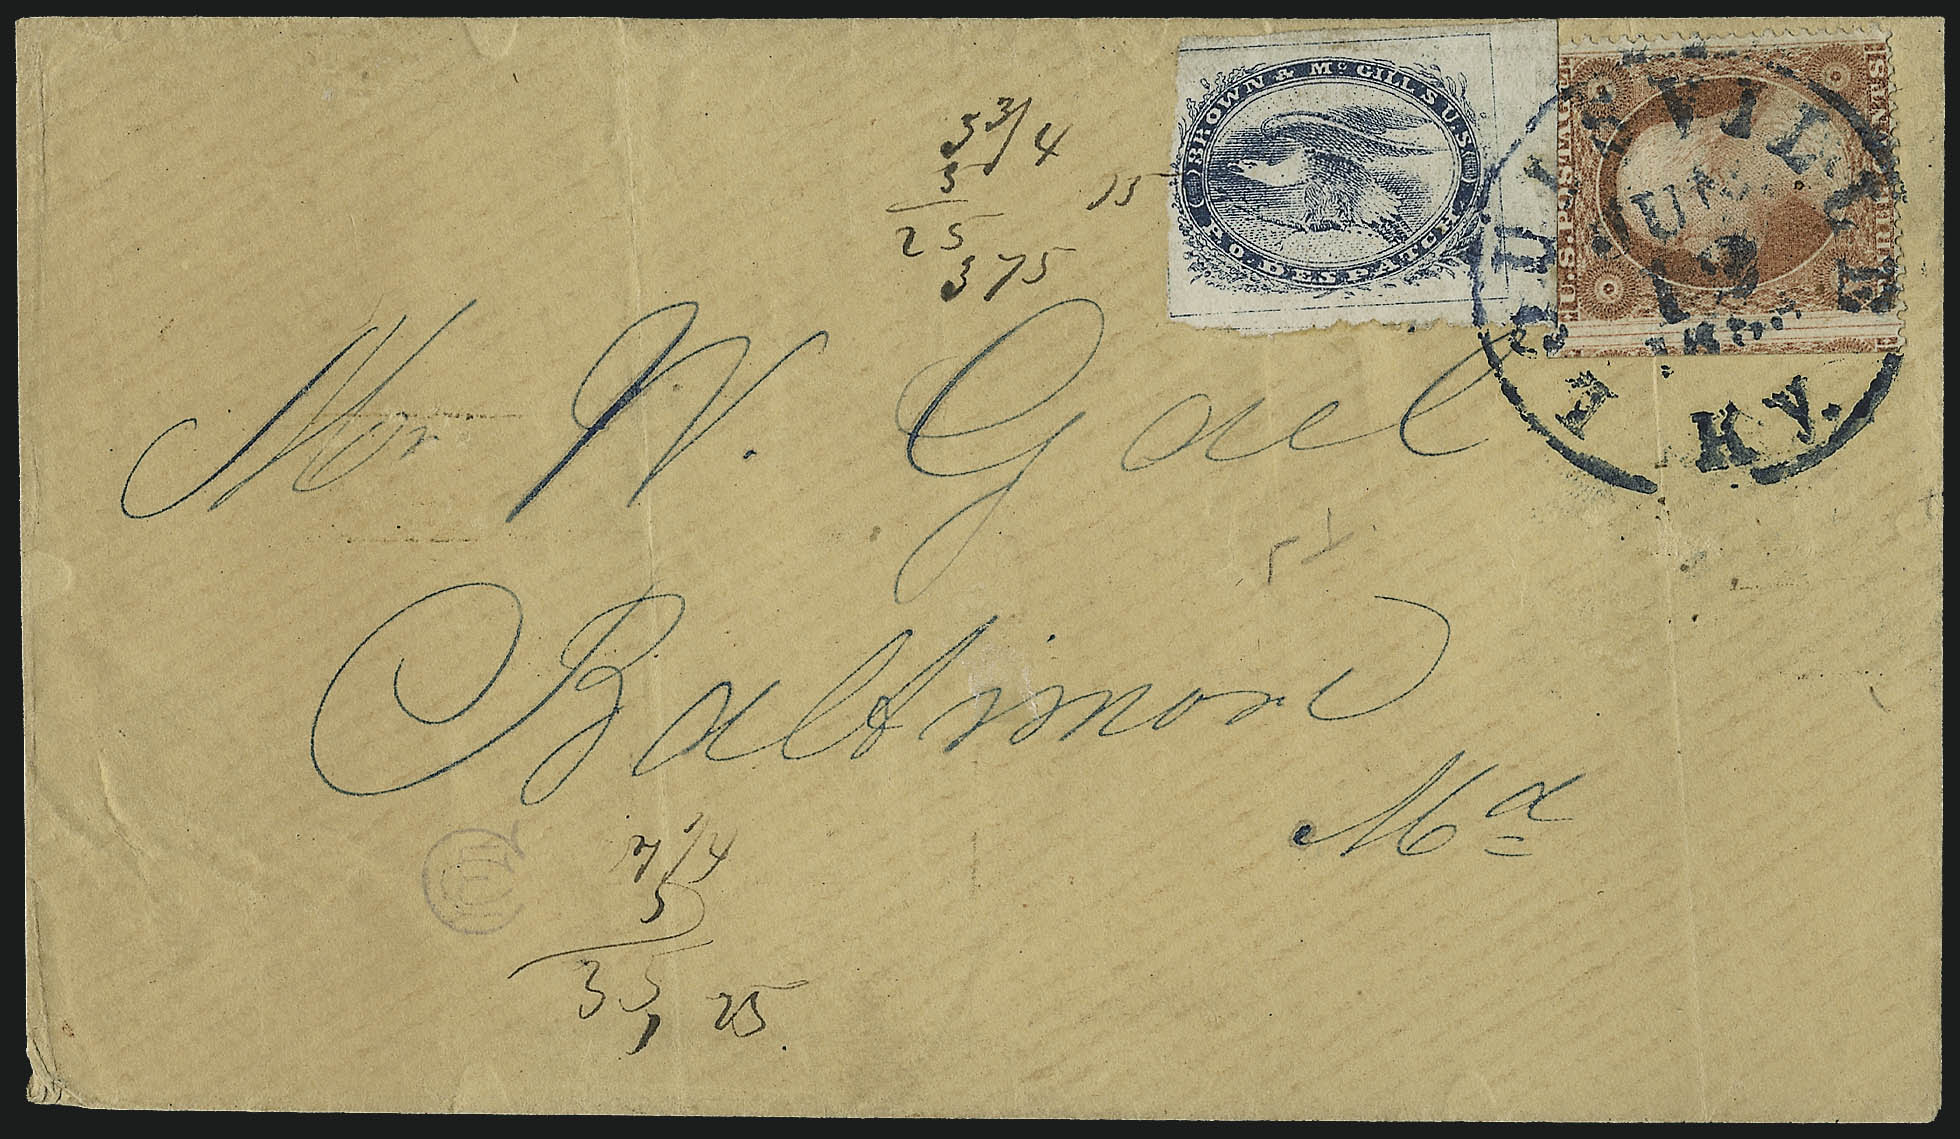 BROWN & McGILL'S U.S.
P.O. DESPATCH
U.S. POSTAGE
THREE CENTS
LOUISVILLE
JUN
13
Ky.
5 3/4
5
25
375
15
Mr W. Gail
Baltimore
Md
7 1/4
5
35, 25